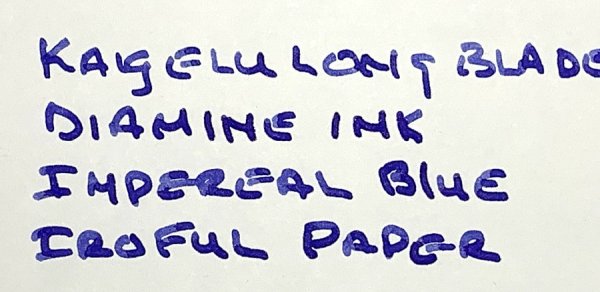 KAIGELU LONG BLADE
DIAMINE INK
IMPEREAL BLUE
IROFUL PAPER